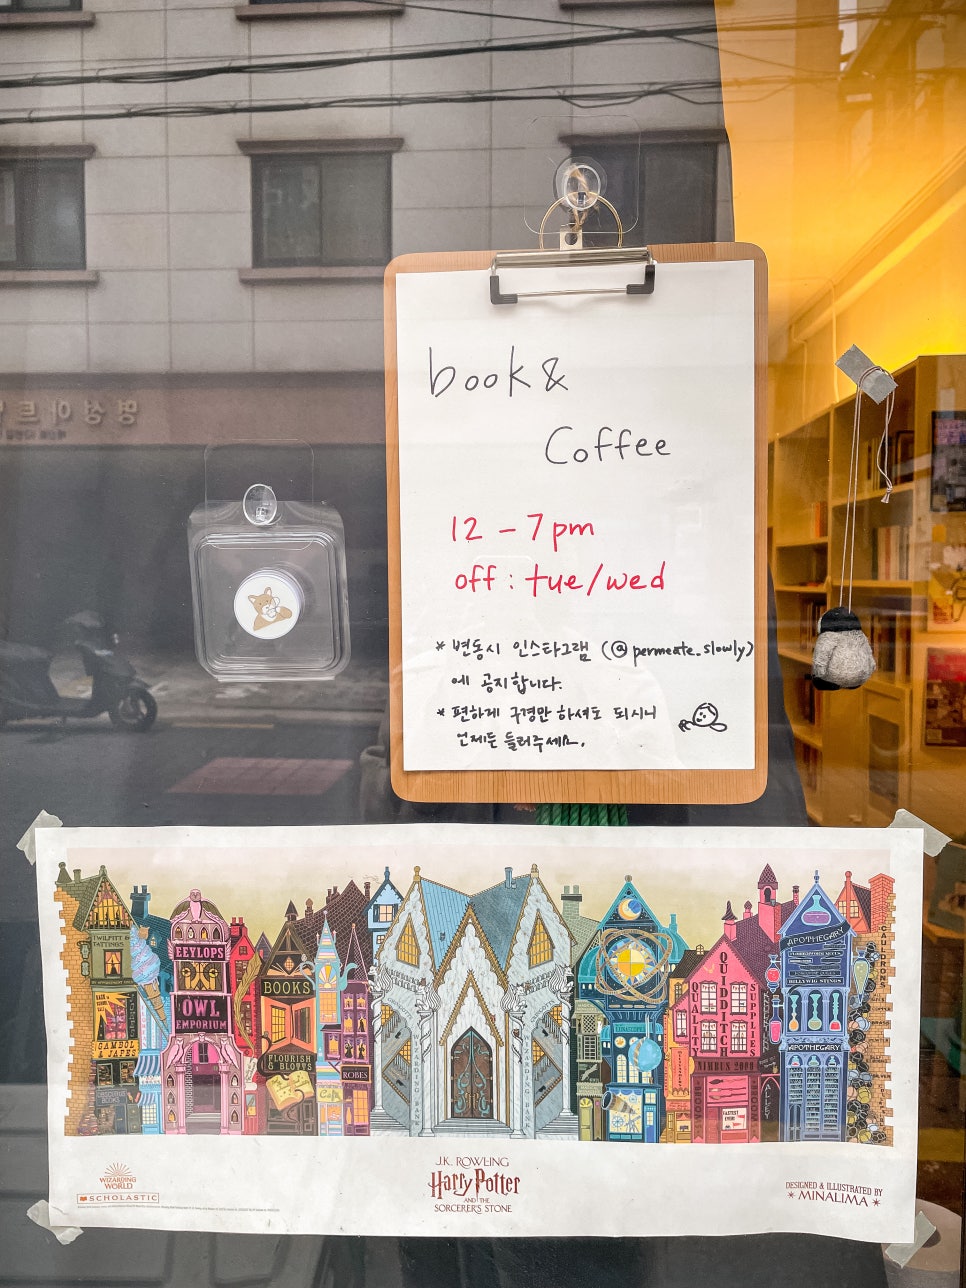 명성아트
book &
Coffee
12 - 7 pm
off : tue/wed
* 변동시 인스타그램 (@permeate_slowly)
에 공지합니다.
* 편하게 구경만 하셔도 되시니
언제든 들러주세요.
TWILFITT &
TATTINGS
GAMBOL
& JAPES
EEYLOPS
OWL
EMPORIUM
BOOKS
FLOURISH
& BLOTTS
Café
ROBES
WIZARDING BANK
WIZARDING BANK
QUALITY
QUIDDITCH
SUPPLIES
NIMBUS 2000
APOTHECARY
BILLYWIG STINGS
APOTHECARY
CAULDRONS
WIZARDING
WORLD
SCHOLASTIC
J.K. ROWLING
Harry Potter
AND THE
SORCERER'S STONE
DESIGNED & ILLUSTRATED BY
MINALIMA